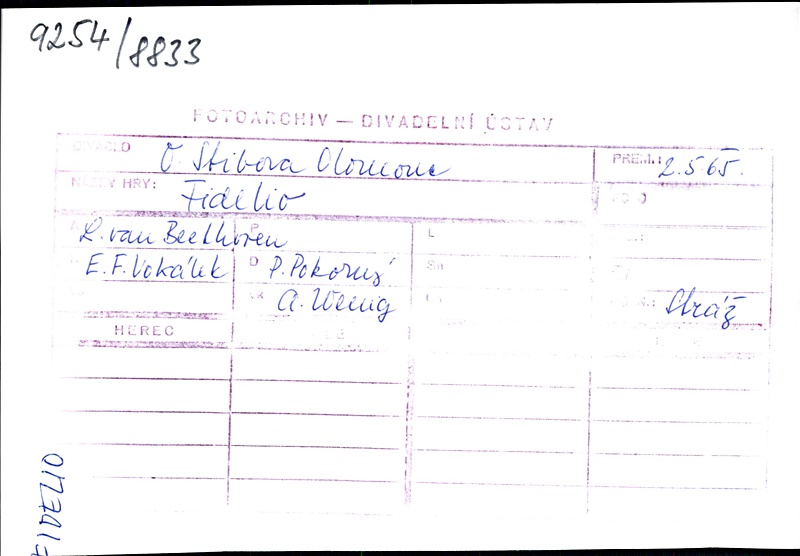 9254/8833
FOTOARCHIV — DIVADELNÍ ÚSTAV
DIVADLO O. Stibora Olomouc PREM.: 2.5 65.
NÁZEV HRY: Fidelio
L. van Beethoven
E. F. Vokálek D P. Pokorný
A. Wenig Stráž
HEREC
FIDELIO